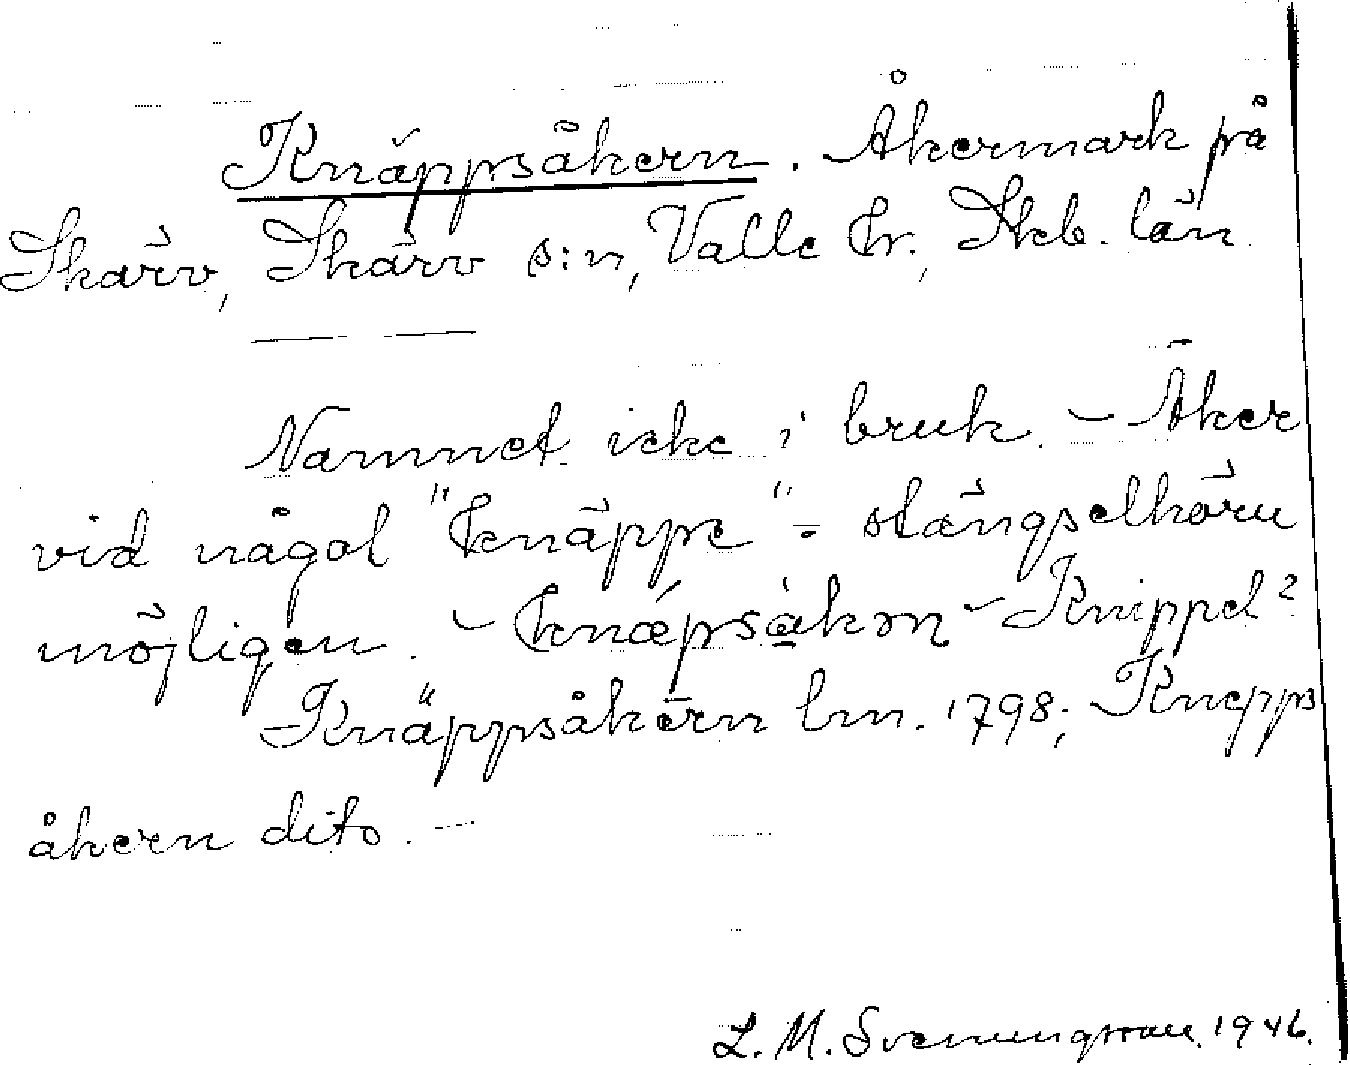 Knäppsåkern. Åkermark på
Skärv, Skärv s:n, Valle hr., Skb. län.
Namnet icke i bruk. – Åker
vid något "knäppe" = stängselhörn
möjligen. – knæpsåkɘn – Knippel?
Knäppsåkern lm. 1798; Knepps
åkern dito. –
L. M. Svenungsson 1946.